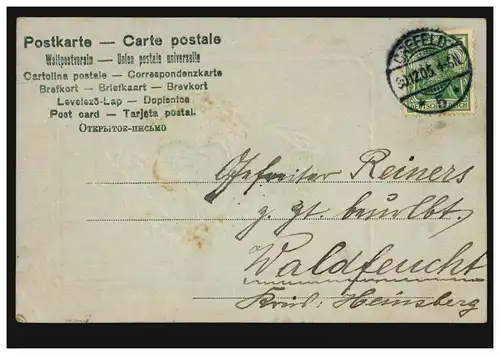 Postkarte — Carte postale
Weltpostverein — Union postale universelle
Cartolina postale — Correspondenzkarte
Brefkort — Briefkaart — Brevkort
Levelező-Lap — Dopisnice
Post card — Tarjeta postal.
ОТКРЫТОЕ-ПИСЬМО
CREFELD
.12.05. 4-5N.
Gefreiter Reiners
z. Zt. beurlbt.
Waldfeucht
Kreis: Heinsberg